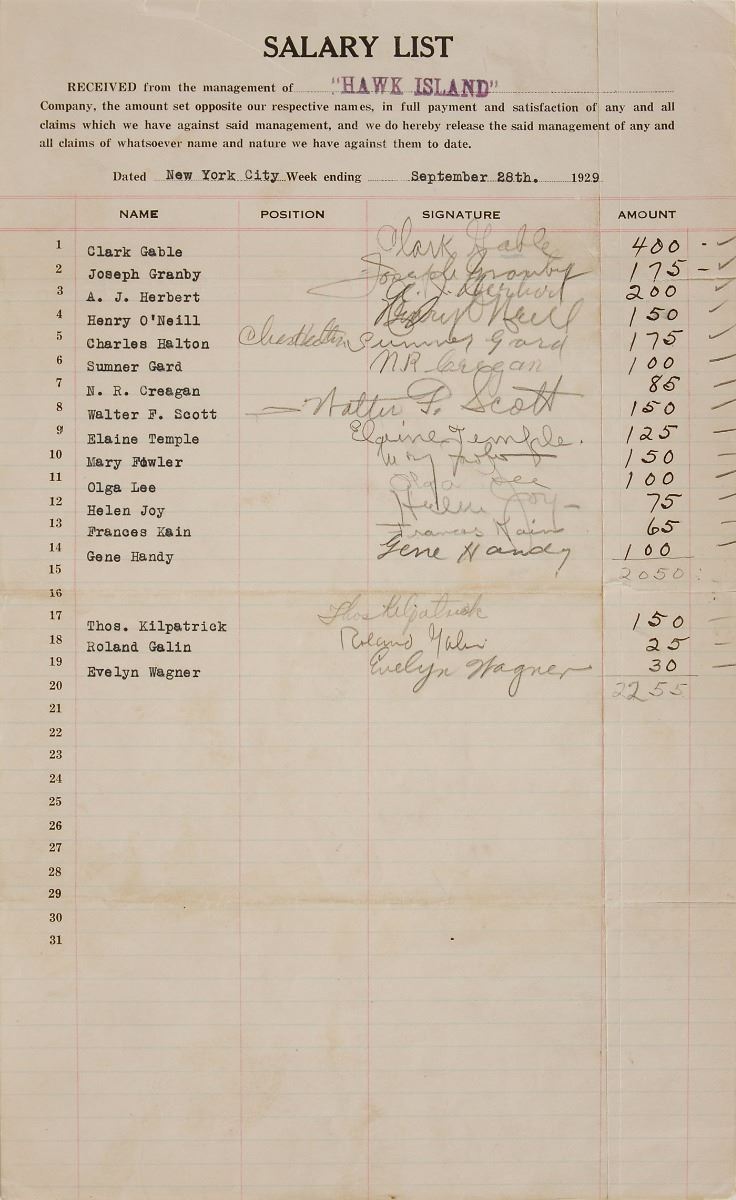 SALARY LIST
RECEIVED from the management of "HAWK ISLAND"
Company, the amount set opposite our respective names, in full payment and satisfaction of any and all
claims which we have against said management, and we do hereby release the said management of any and
all claims of whatsoever name and nature we have against them to date.
Dated New York City Week ending September 28th. 1929
NAME POSITION SIGNATURE AMOUNT
1 Clark Gable Clark Gable 400 -
2 Joseph Granby Joseph Granby 175 -
3 A. J. Herbert A. J. Herbert 200
4 Henry O'Neill Henry O'Neill 150
5 Charles Halton Chas Halton Sumner Gard 175
6 Sumner Gard N.R. Creagan 100
7 N. R. Creagan 85
8 Walter F. Scott Walter F. Scott 150
9 Elaine Temple Elaine Temple. 125
10 Mary Fowler Mary Fowler 150
11 Olga Lee Olga Lee 100
12 Helen Joy Helen Joy 75
13 Frances Kain Frances Kain 65
14 Gene Handy Gene Handy 100
15 2050
16
17 Thos. Kilpatrick Thos Kilpatrick 150
18 Roland Galin Roland Galin 25
19 Evelyn Wagner Evelyn Wagner 30
20 2255
21
22
23
24
25
26
27
28
29
30
31